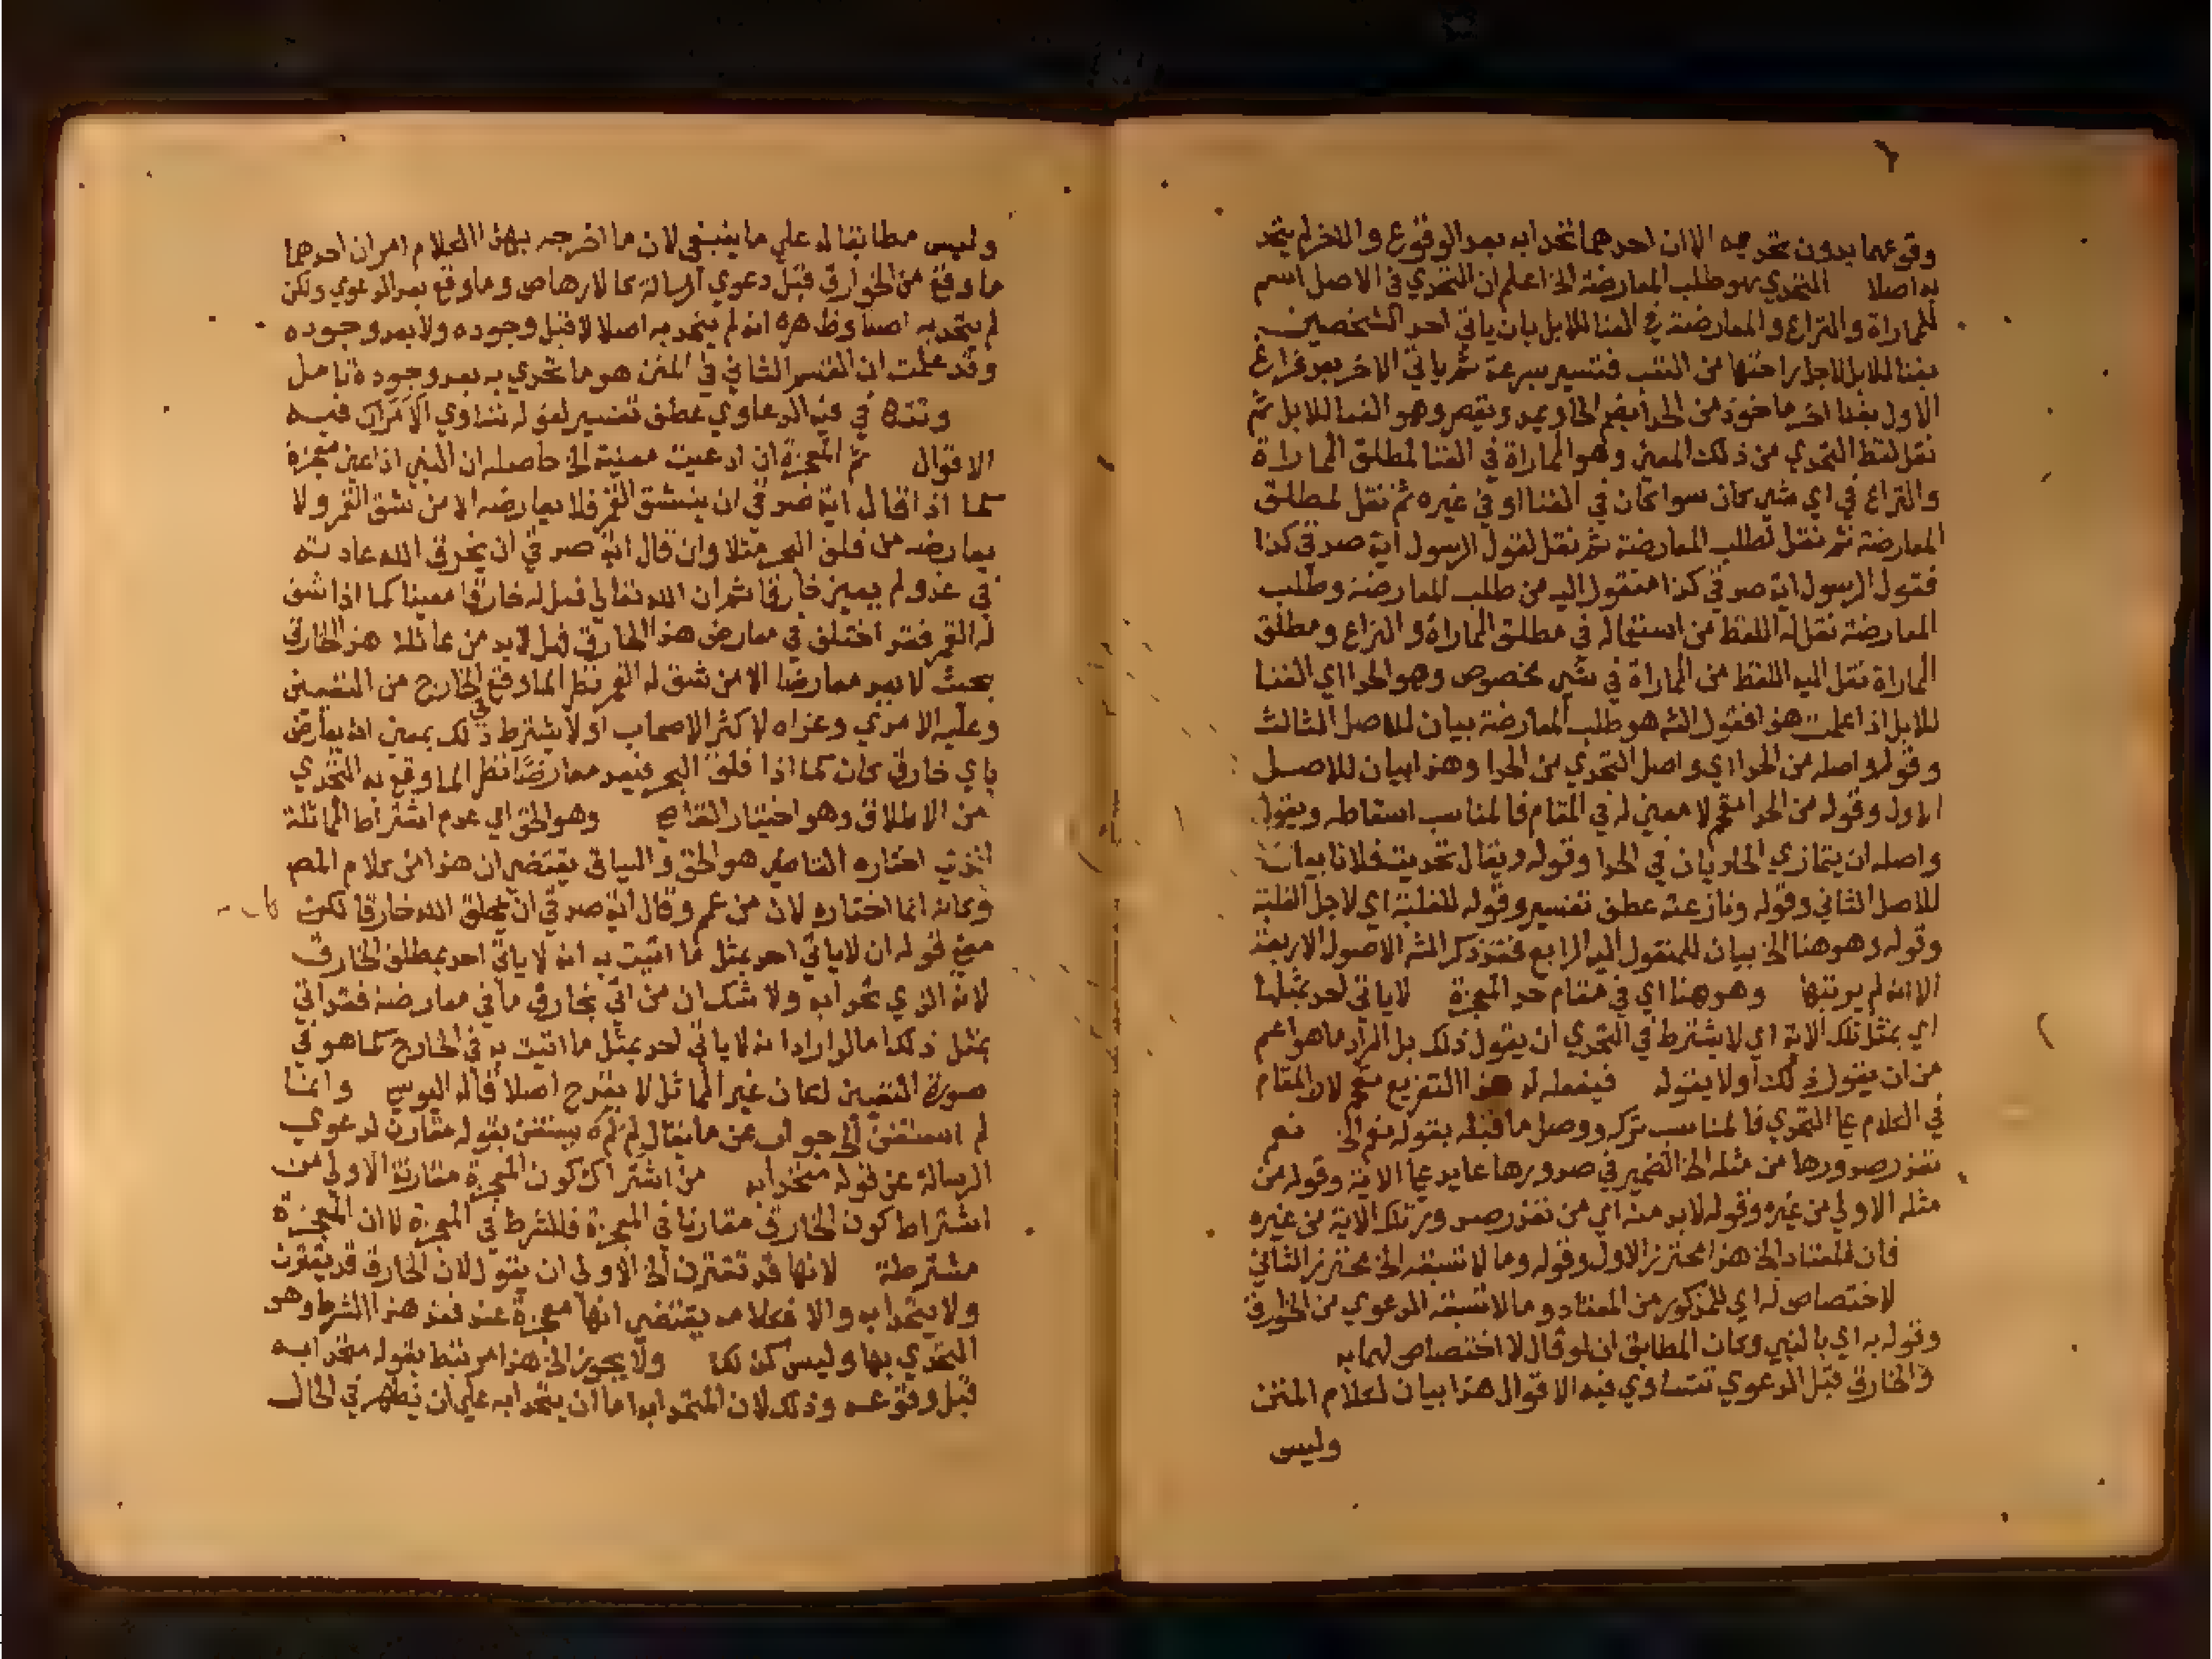 وقوعهما بدون تحديه الا ان احدهما تحدا به بعد الوقوع والاخر لم يتحد
به اصلا المتحدي هو طلب المعارضة الخ اعلم ان التحدي في الاصل اسم
للمماراة والنزاع والمعارضة في الغنا للابل بان ياتي احد الشخصين
بغنا للابل لاجل راحتها من التعب فتسير بسرعة ثم ياتي الاخر بعد فراغ
الاول بغنا اخر ماخوذ من الحدا بضم الحا ويمد ويقصر وهو الغنا للابل ثم
نقل لفظ التحدي من ذلك المعنى وهو المماراة في الغنا لمطلق المماراة
والنزاع في اي شي كان سوا كان في الغنا او في غيره ثم نقل لمطلق
المعارضة ثم نقل لطلب المعارضة ثم نقل لقول الرسول اية صدقي كذا
فقول الرسول اية صدقي كذا منقول اليه من طلب المعارضة وطلب
المعارضة نقل له اللفظ من استعماله في مطلق المماراة والنزاع ومطلق
المماراة نقل اليه اللفظ من المماراة في شي مخصوص وهو الحدا اي الغنا
للابل اذا علمت هذا فقول الشه هو طلب المعارضة بيان للاصل الثالث
وقوله واصله من الحدا اي واصل التحدي من الحدا وهذا بيان للاصل
الاول وقوله من الحدا مقحم لا معنى له في المقام فالمناسب اسقاطه ويقول
واصله ان يتمازي الحاديان في الحدا وقوله ويقال تحديت فلانا بيان
للاصل الثاني وقوله ونازعته عطف تفسير وقوله للغلبة اي لاجل الغلبة
وقوله وهو هنا الخ بيان للمنقول اليه الرابع فقد ذكر الشه الاصول الاربعة
الا انه لم يرتبها وهو هنا اي في مقام حد المعجزة لا ياتي احد بمثلها
اي بمثل تلك الاية اي لا يشترط في التحدي ان يقول ذلك بل المراد ما هو اعم
من ان يقول ذلك او لا يقوله فيفعله له هذا التفريع مع لان المقام
في الكلام على التحدي فالمناسب تركه ووصل ما قبله بقوله نعم الخ نعم
تعذر صدورها من مثله الخ الضمير في صدورها عايد على الاية وقوله من
مثله الاولى من غيره وقوله لابد منه اي من تعذر صدور تلك الاية من غيره
فان المعتاد الخ هذا محترز الاول وقوله وما لا تسبقه الخ محترز الثاني
لا اختصاص له اي للمذكور من المعتاد وما لا تسبقه الدعوي من الخوارق
وقوله به اي بالنبي وكان المطابق ان لو قال لا اختصاص لهما به
والخارق قبل الدعوي تتساوي فيه الاقوال هذا بيان لكلام المتن
وليس
وليس مطابقا له علي ما ينبغي لان ما اخرجه بهذا الكلام امران احدهما
ما وقع من الخوارق قبل دعوي الرسالة كالارهاص وما وقع بعد الدعوي ولكن
لم يتحد به اصلا وظاهره انه لم يتحد به اصلا لا قبل وجوده ولا بعد وجوده
وقد علمت ان القسم الثاني في المتن هو ما تحدي به بعد وجوده تامل
في فيه الدعاوي عطف تفسير لقوله تتساوي فيه
الاقوال ثم المعجزة ان ادعيت معينة الخ حاصله ان النبي اذا عين معجزة
كما اذا قال اية صدقي ان ينشق القمر فلا يعارضه الا من شق القمر ولا
يعارضه من فلق البحر مثلا وان قال اية صدقي ان يخرق الله عادته
في غد ولم يعين خارقا ثم ان الله تعالي فعل له خارقا معينا كما اذا شق
له القمر فقد اختلف في معارض هذا الخارق فقيل لابد من مماثلة هذا الخارق
بحيث لا يعد معارضا الا من شق له القمر نظر الما وقع في الخارج من التعيين
وعليه الامدي وعزاه لاكثر الاصحاب او لا يشترط ذلك بمعنى انه يعارض
باي خارق كان كما اذا فلق البحر فيعد معارضا نظر الما وقع به التحدي
من الاطلاق وهو اختيار القاضي وهو الحق اي عدم اشتراط المماثلة
الذي اختاره القاضي هو الحق والسياق يقتضي ان هذا من كلام المص
وكانه انما اختاره لان من عمم وقال اية صدقي ان يخلق الله خارقا لكن كان
معنى قوله ان لا ياتي احد بمثل ما اتيت به انه لا ياتي احد بمطلق الخارق
لانه الذي تحدا به ولا شك ان من اتى بخارق ما في معارضته فقد اتي
بمثل ذلك اما لو اراد انه لا ياتي احد بمثل ما اتيت به في الخارج كما هو في
صورة التعيين لكان غير المماثل لا يقدح اصلا قاله اليوسي وانما
لم استغن الخ جواب عن ما يقال لم لم يستغن بقوله مقارن لدعوي
الرسالة عن قوله متحدا به من اشتراك كون المعجزة مقارنة الاولى من
اشتراط كون الخارق مقارنا في المعجزة فالشرط في المعجزة لا ان المعجزة
مشترطة لانها قد تقترن الخ الاولى ان يقول لان الخارق قد يقترن
ولا يتحدا به والا فكلامه يقتضي انها معجزة عند فقد هذا الشرط وهو
التحدي بها وليس كذلك ولا يجوز الخ هذا مرتبط بقوله متحدا به
قبل وقوعه وذلك لان المتحدا به اما ان يتحدا به علي ان يظهر في الحال